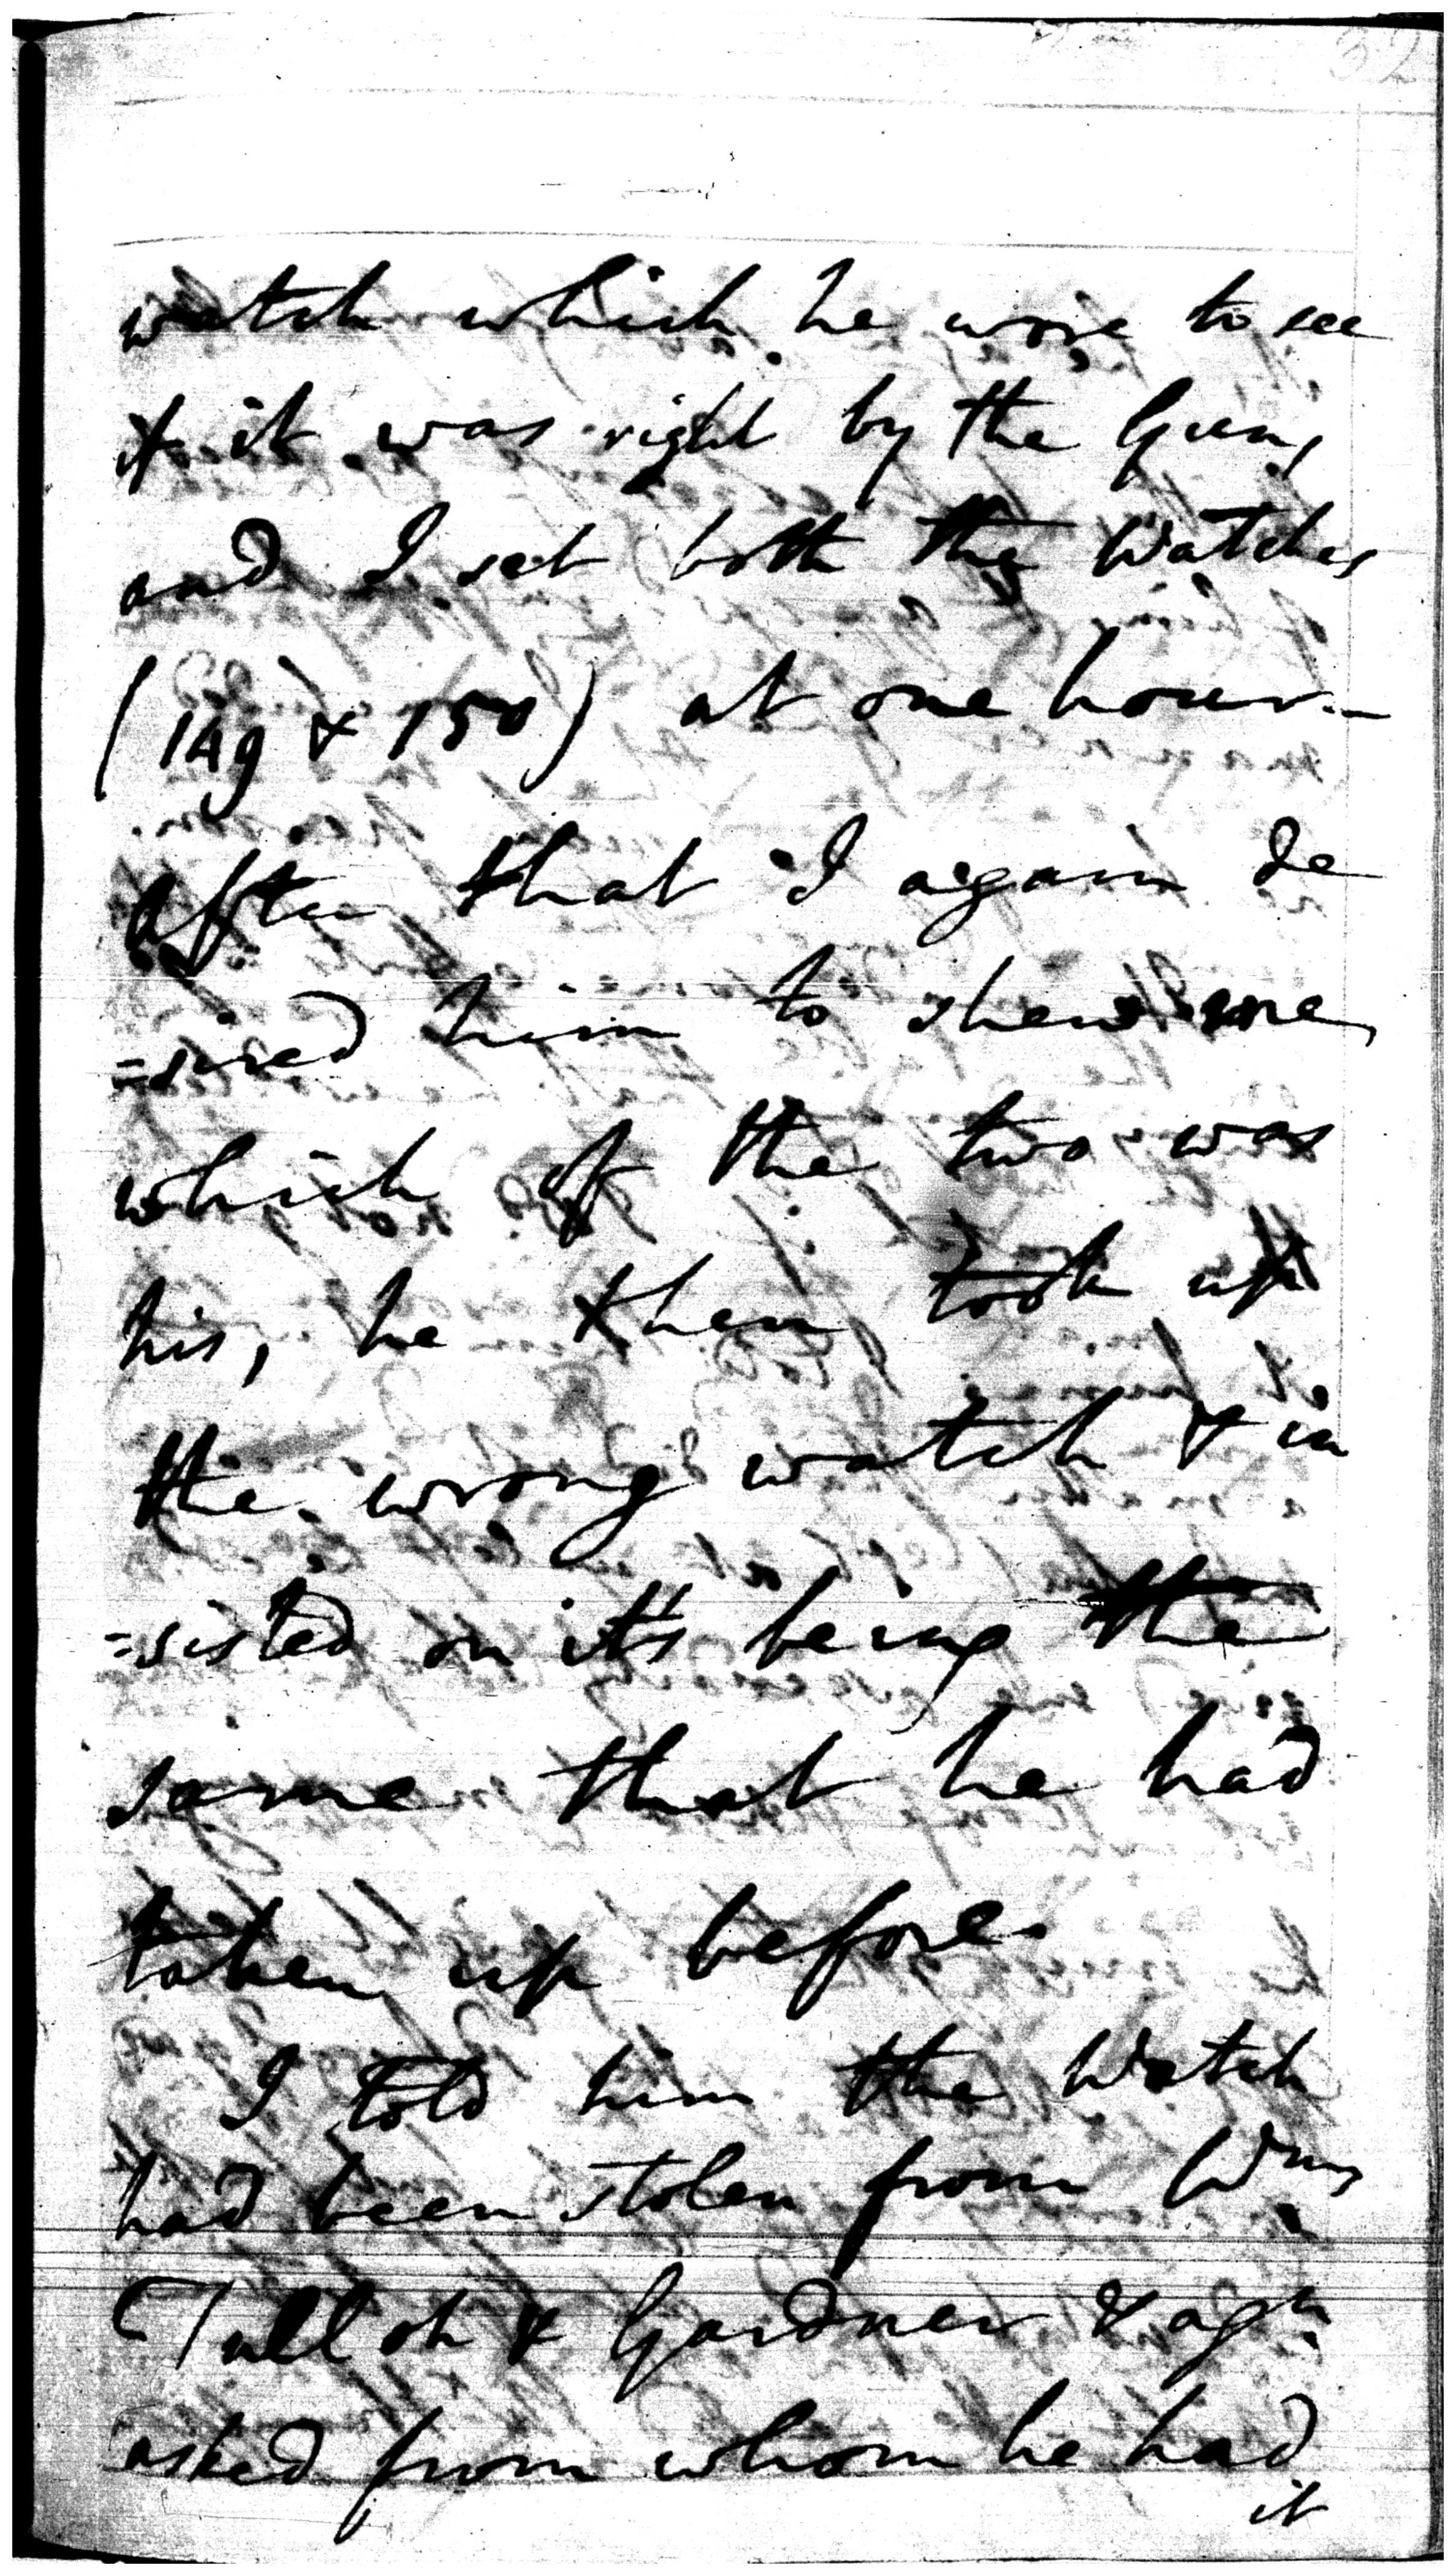 32
watch which he wore to see
if it was right by the Gun,
and I set both the Watches
(149 & 150) at one hour—
After that I again de
=sired him to shew me,
which of the two was
his, he then took up
the wrong watch & in
=sisted on its being the
same that he had
taken up before.
I told him the Watch
had been stolen from
Tulloh & Gardner & agn
asked from whom he had
it